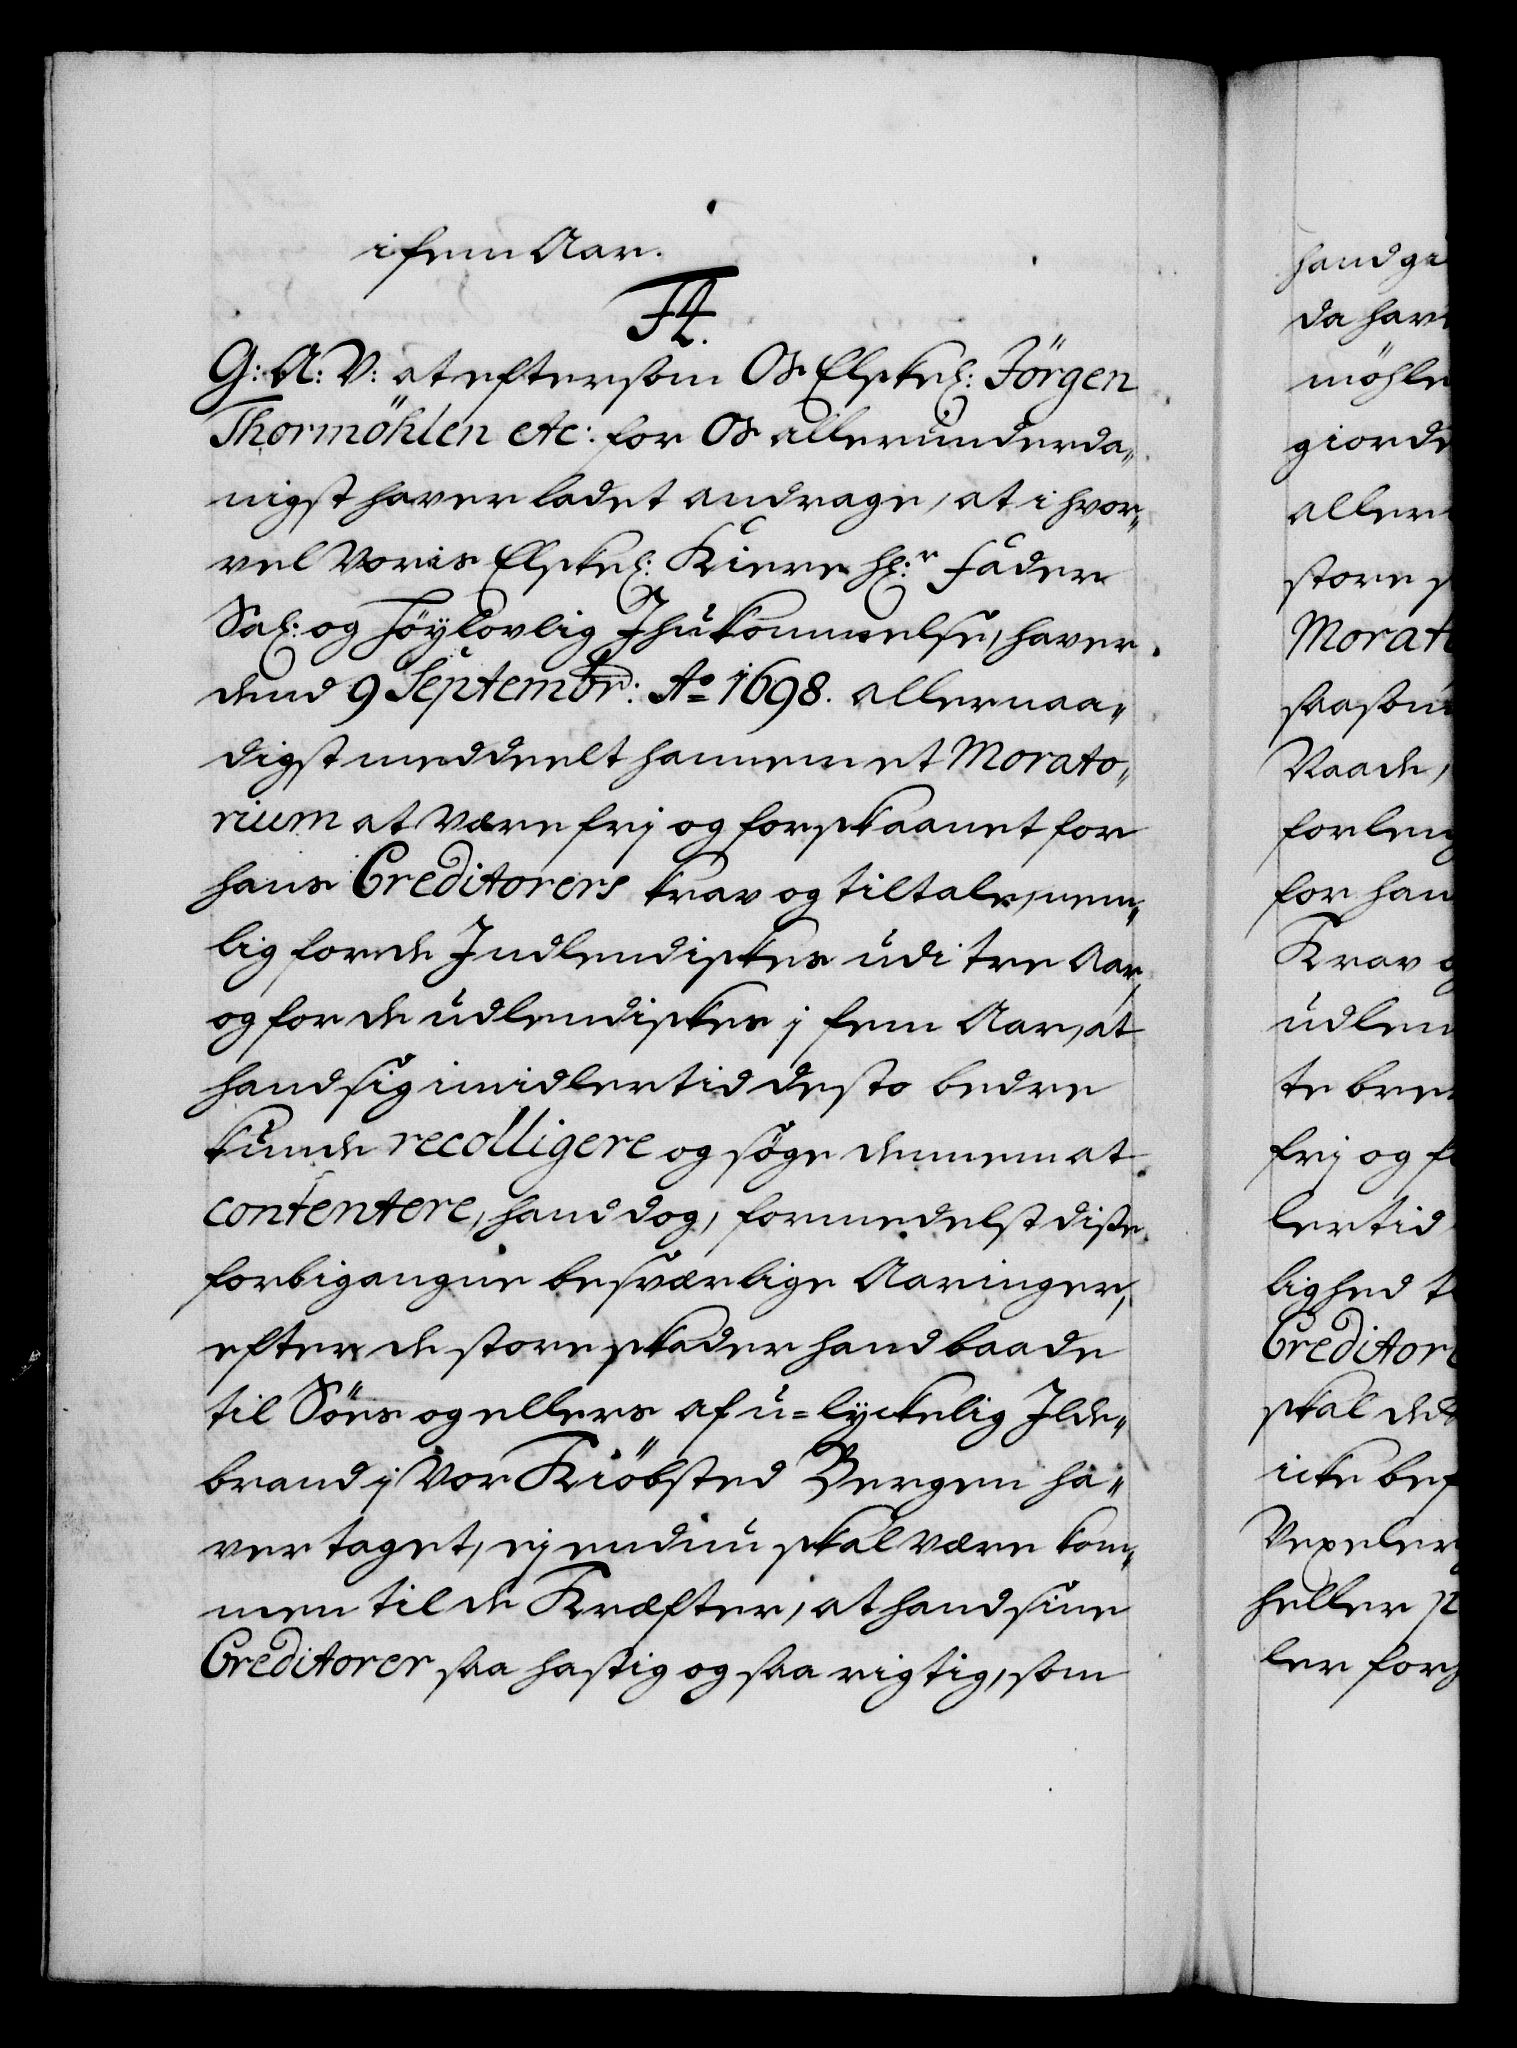 i fem Aar.
F4.
G: A: V: at eftersom Os Elskel: Jörgen
Thormöhlen etc: for Os allerunderda„
nigst haver ladet andrage, at i hvor„
vel Voris Elskel: Kiere Hl:r Fader
Sal: og Höylovlig Ihukommelse, haver
dend 9 Septembr: Ao 1698. allernaa„
digst meddeelt hannem et Morato„
rium at være frj og forskaanet for
hans Creditorers krav og tiltale, nem„
lig for de Indlendiskes udi tre Aar,
og for de udlendiskes j fem Aar, at
hand sig imidlertid desto bedre
kunde recolligere og søge dennem at
contentere, hand dog, formedelst disse
forbigangne besværlige Aaringer,
efter de store skader hand baade
til Söes og ellers af u=lyckelig Ilde„
brand j Vor Kiöbsted Bergen ha„
ver taget, ej endnu skal være kom„
men til de Kræfter, at hand sine
Creditorer saa hastig og saa rigtig, som
hand gi
da hav
möhle
giorde
aller
store s
Morato
saasom
Naade,
forleng
for han
Krav o
udlen
te bre
frj og f
lertid
lighed t
Creditore
skal det
icke bef
Vexeler
heller p
ler forh